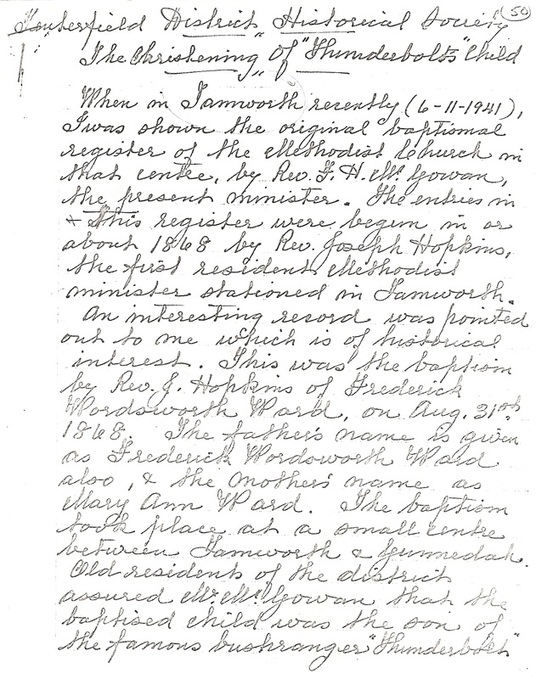 Tenterfield District Historical Society (50)
"The Christening" Of "Thunderbolts" Child
When in Tamworth recently (6-11-1941),
I was shown the original baptismal
register of the Methodist Church in
that centre, by Rev. F. H. McGowan,
the present minister. The entries in
+ this register were begun in or
about 1868 by Rev. Joseph Hopkins,
the first resident Methodist
minister stationed in Tamworth.
An interesting record was pointed
out to me which is of historical
interest. This was the baptism
by Rev. J. Hopkins of Frederick
Wordsworth Ward, on Aug. 31st
1868. The father's name is given
as Frederick Wordsworth Ward
also, & the mother's name as
Mary Ann Ward. The baptism
took place at a small centre
between Tamworth & Gunnedah.
Old residents of the district
assured Mr. McGowan that the
baptised child was the son of
the famous bushranger "Thunderbolt"